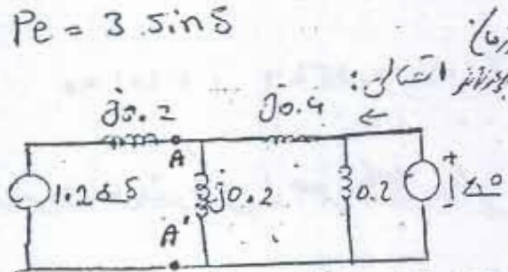 Pe = 3 sin δ
(ب)
اتصالی :
j0.2
j0.4
A
1.2∠δ
j0.2
0.2
+
1∠0
A'